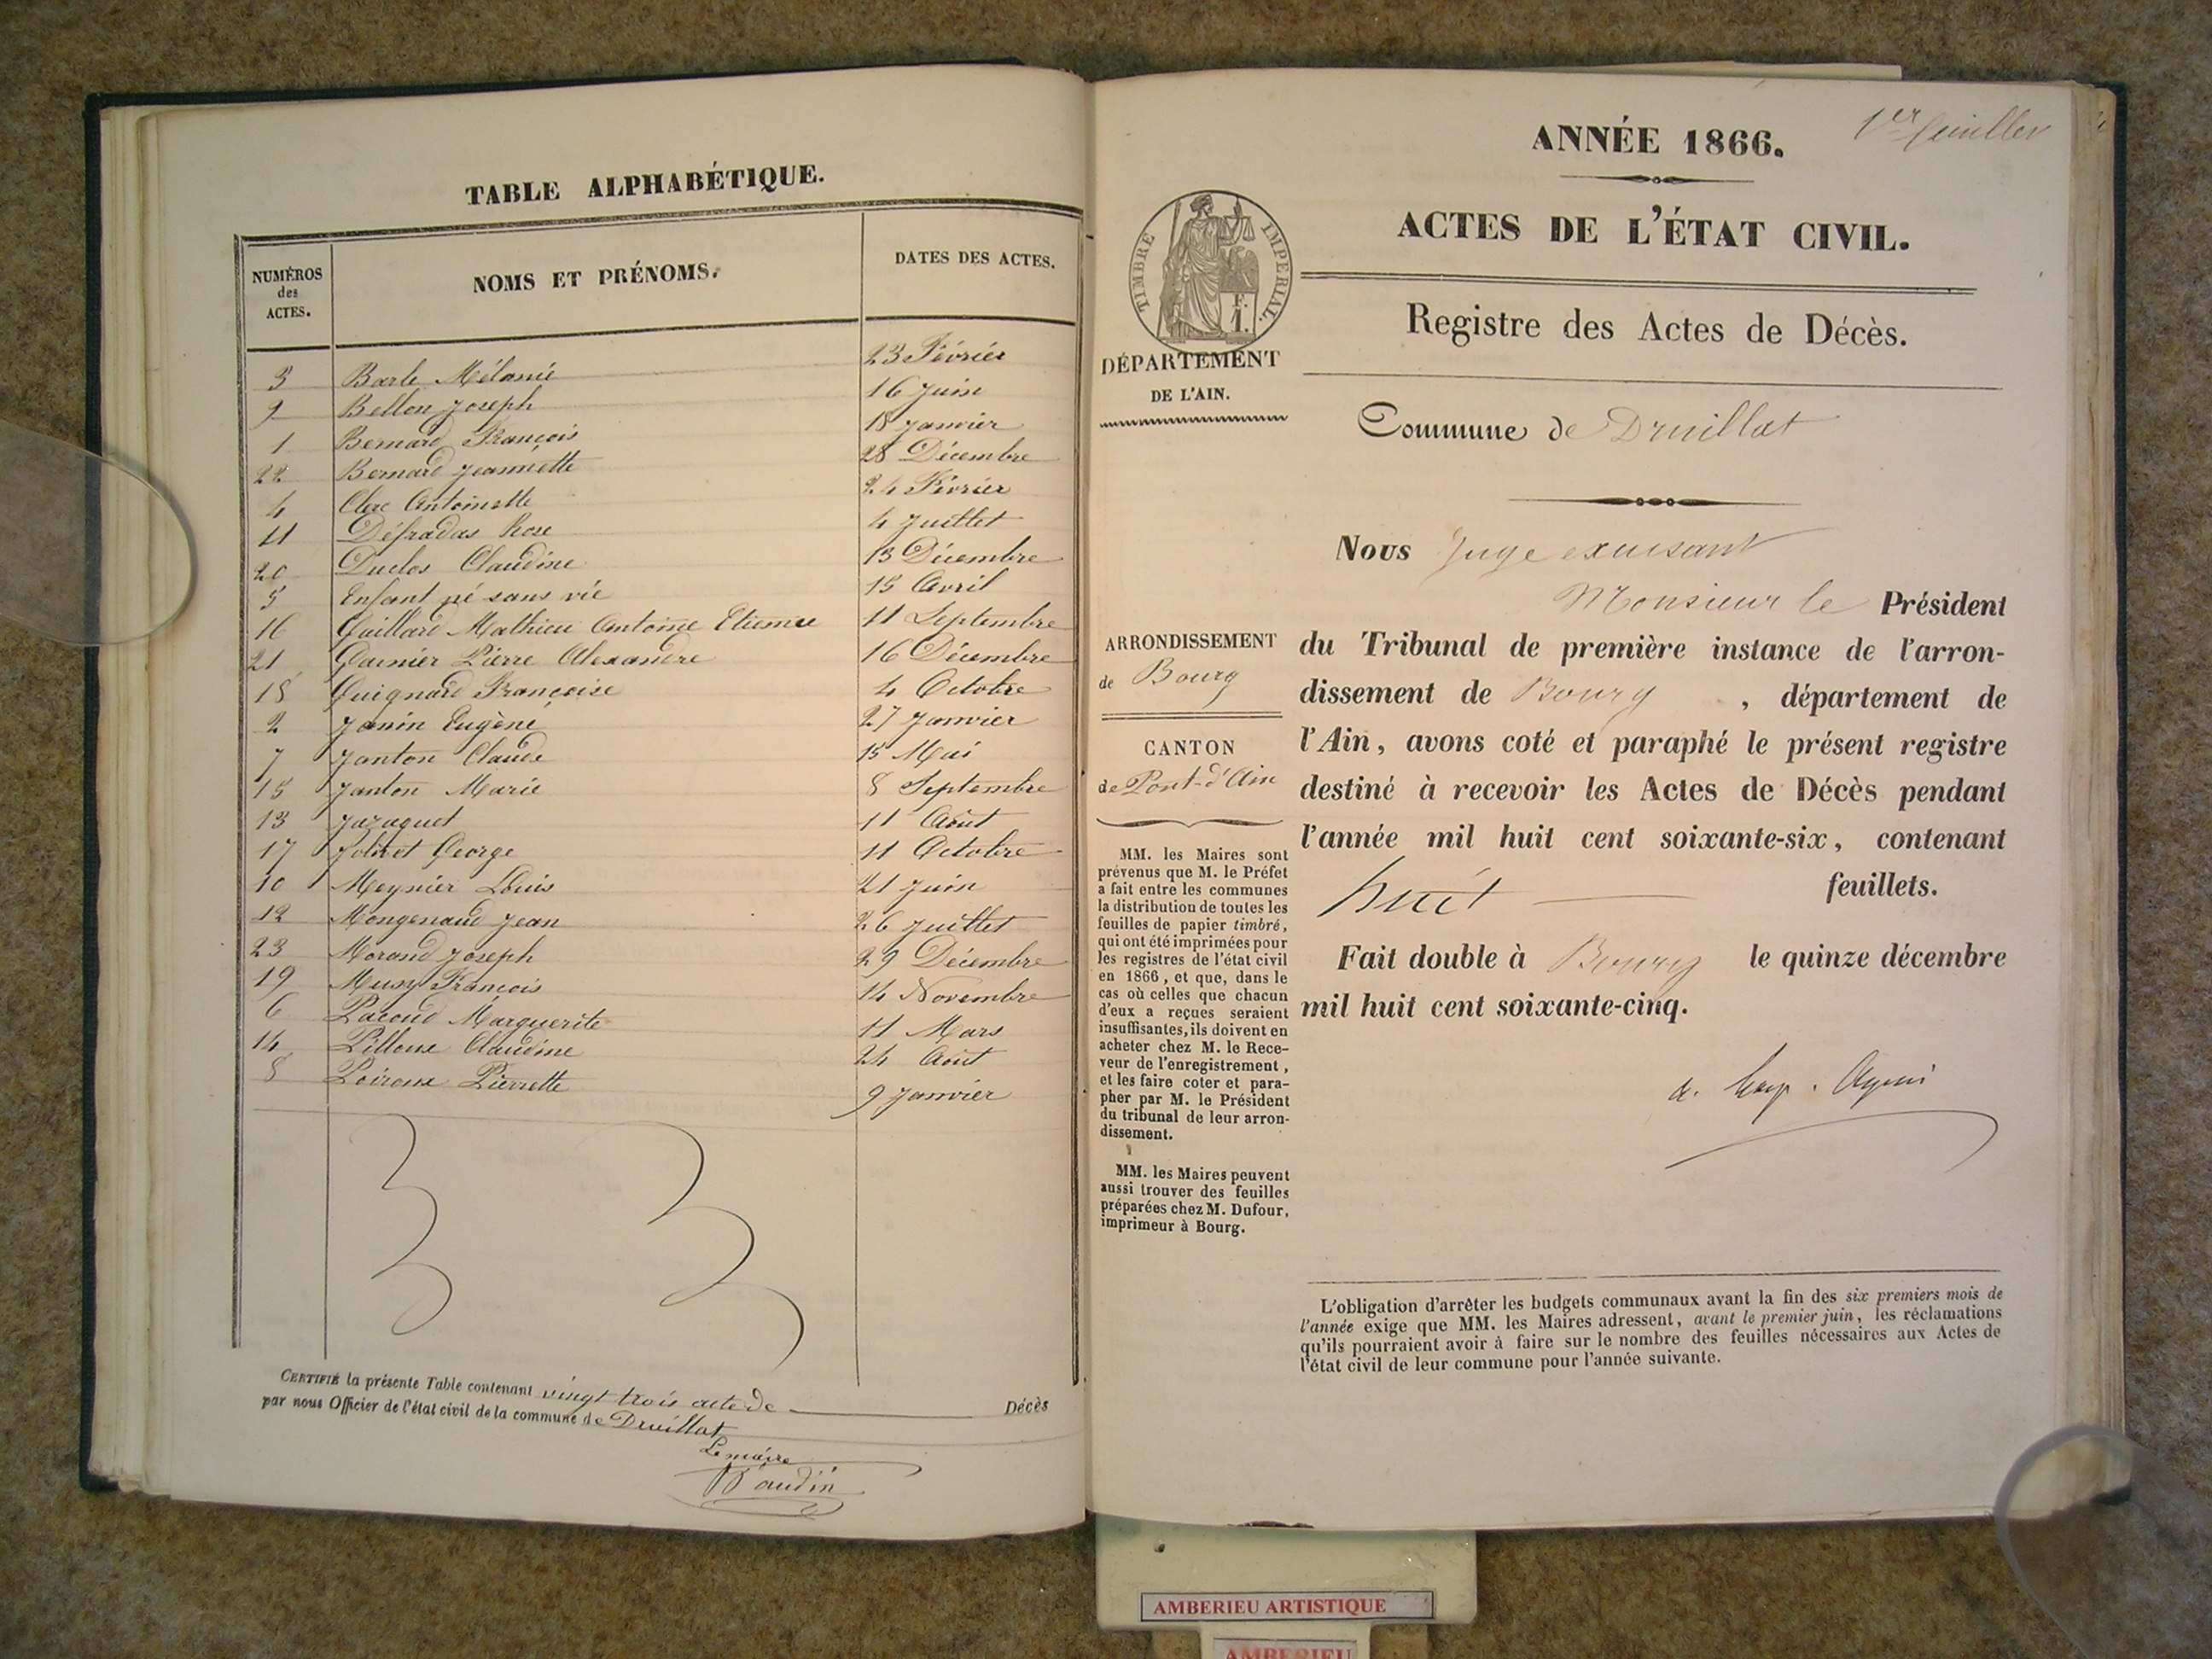 TABLE ALPHABÉTIQUE.
NUMÉROS des ACTES. NOMS ET PRÉNOMS. DATES DES ACTES.
3 Barle Mélanie 23 Février
9 Bellon Joseph 16 Juin
1 Bernard François 18 Janvier
22 Bernard Jeannette 28 Décembre
4 Clerc Antoinette 24 Février
11 Défradas Rose 4 Juillet
20 Duclos Claudine 13 Décembre
5 Enfant né sans vie 15 Avril
16 Gaillard Mathieu Antoine Etienne 11 Septembre
21 Garnier Pierre Alexandre 16 Décembre
18 Guignard Françoise 4 Octobre
2 Janin Eugène 27 Janvier
7 Janton Claude 15 Mai
15 Janton Marie 8 Septembre
13 Jazaguet 11 Août
17 Jolivet George 11 Octobre
10 Meynier Louis 21 Juin
12 Mongenaud Jean 26 Juillet
23 Morand Joseph 29 Décembre
19 Musy François 14 Novembre
6 Pacoud Marguerite 11 Mars
14 Pilloux Claudine 24 Août
8 Poiroux Pierrette 9 Janvier
CERTIFIÉ la présente Table contenant vingt trois acte de Décès
par nous Officier de l'état civil de la commune de Druillat
Le maire
Baudin
1er feuillet
ANNÉE 1866.
ACTES DE L'ÉTAT CIVIL.
Registre des Actes de Décès.
TIMBRE IMPERIAL.
DÉPARTEMENT
DE L'AIN.
Commune de Druillat
ARRONDISSEMENT
de Bourg
CANTON
de Pont-d'Ain
MM. les Maires sont
prévenus que M. le Préfet
a fait entre les communes
la distribution de toutes les
feuilles de papier timbré,
qui ont été imprimées pour
les registres de l'état civil
en 1866, et que, dans le
cas où celles que chacun
d'eux a reçues seraient
insuffisantes, ils doivent en
acheter chez M. le Rece-
veur de l'enregistrement,
et les faire coter et para-
pher par M. le Président
du tribunal de leur arron-
dissement.
MM. les Maires peuvent
aussi trouver des feuilles
préparées chez M. Dufour,
imprimeur à Bourg.
Nous Juge exerçant
Monsieur le Président
du Tribunal de première instance de l'arron-
dissement de Bourg, département de
l'Ain, avons coté et paraphé le présent registre
destiné à recevoir les Actes de Décès pendant
l'année mil huit cent soixante-six, contenant
huit feuillets.
Fait double à Bourg le quinze décembre
mil huit cent soixante-cinq.
L'obligation d'arrêter les budgets communaux avant la fin des six premiers mois de
l'année exige que MM. les Maires adressent, avant le premier juin, les réclamations
qu'ils pourraient avoir à faire sur le nombre des feuilles nécessaires aux Actes de
l'état civil de leur commune pour l'année suivante.
AMBERIEU ARTISTIQUE
AMBERIEU